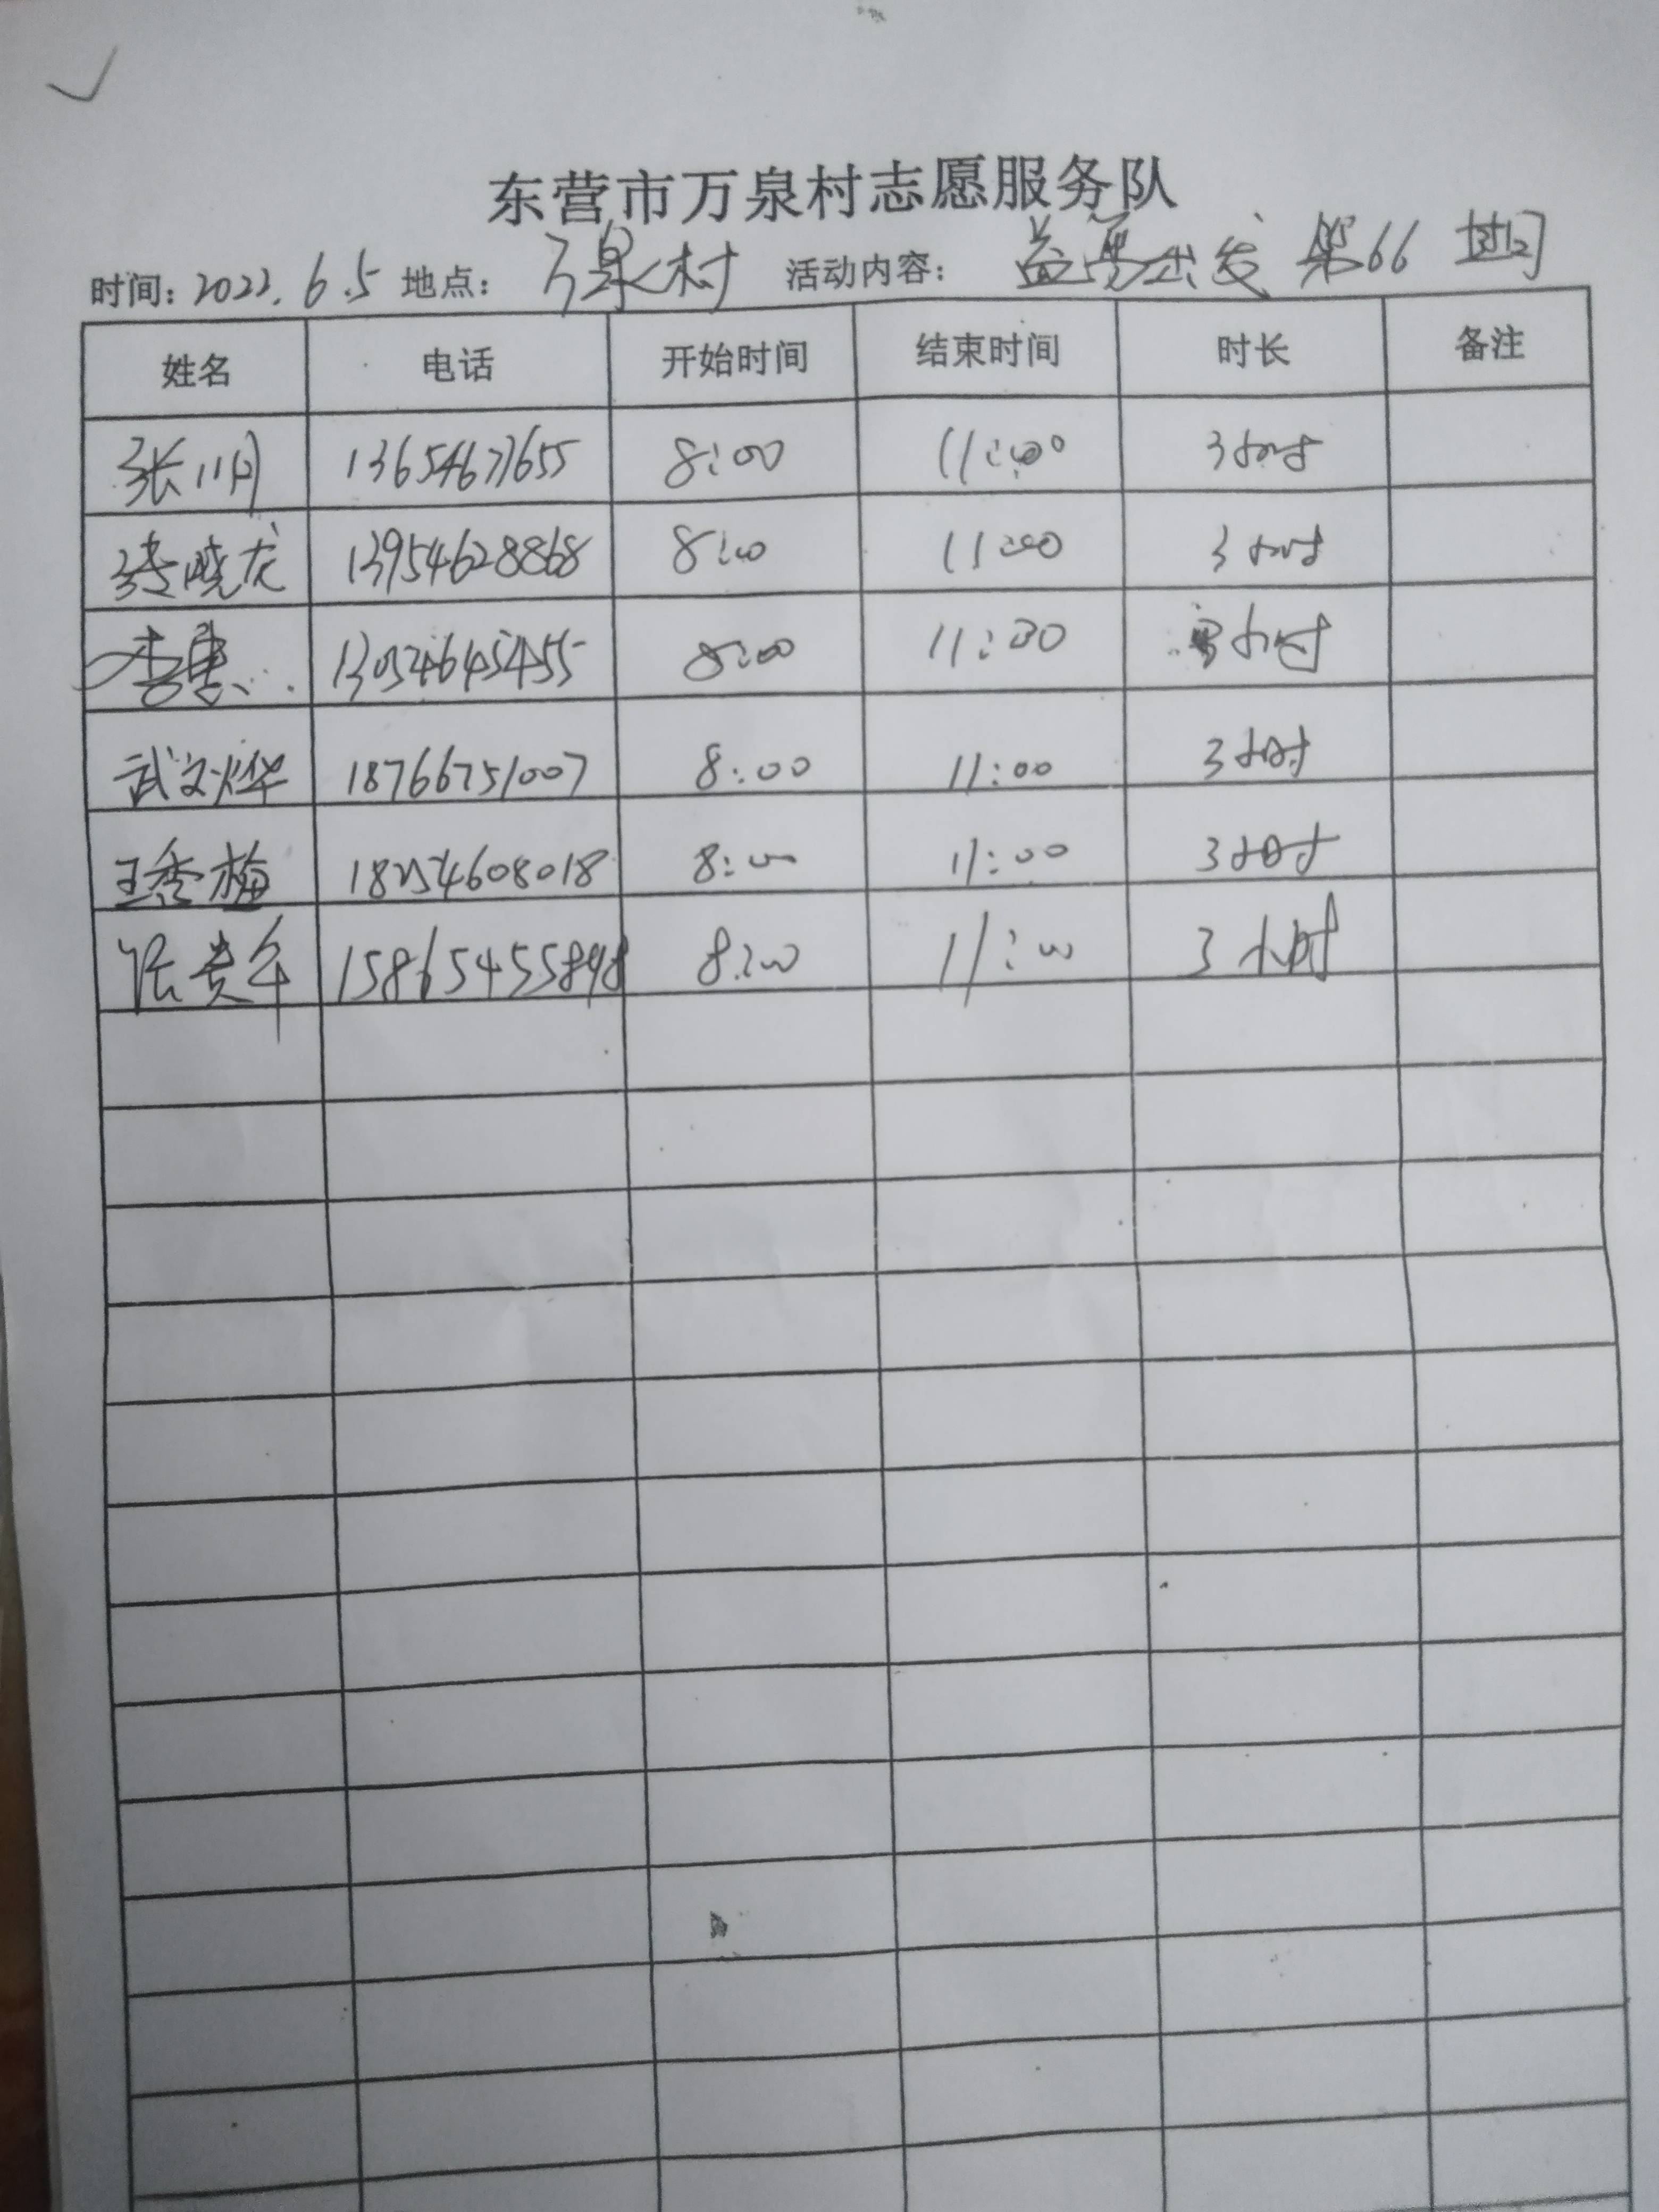 东营市万泉村志愿服务队
时间：2022.6.5 地点：万泉村 活动内容：益勇出发 第66期
姓名 电话 开始时间 结束时间 时长 备注
张川 13654677655 8:00 11:00 3小时
李晓龙 13954628868 8:00 11:00 3小时
李惠 13054645455 8:00 11:00 3小时
武文烨 18766751007 8:00 11:00 3小时
王秀梅 18254608018 8:00 11:00 3小时
张贵军 15865455898 8:00 11:00 3小时